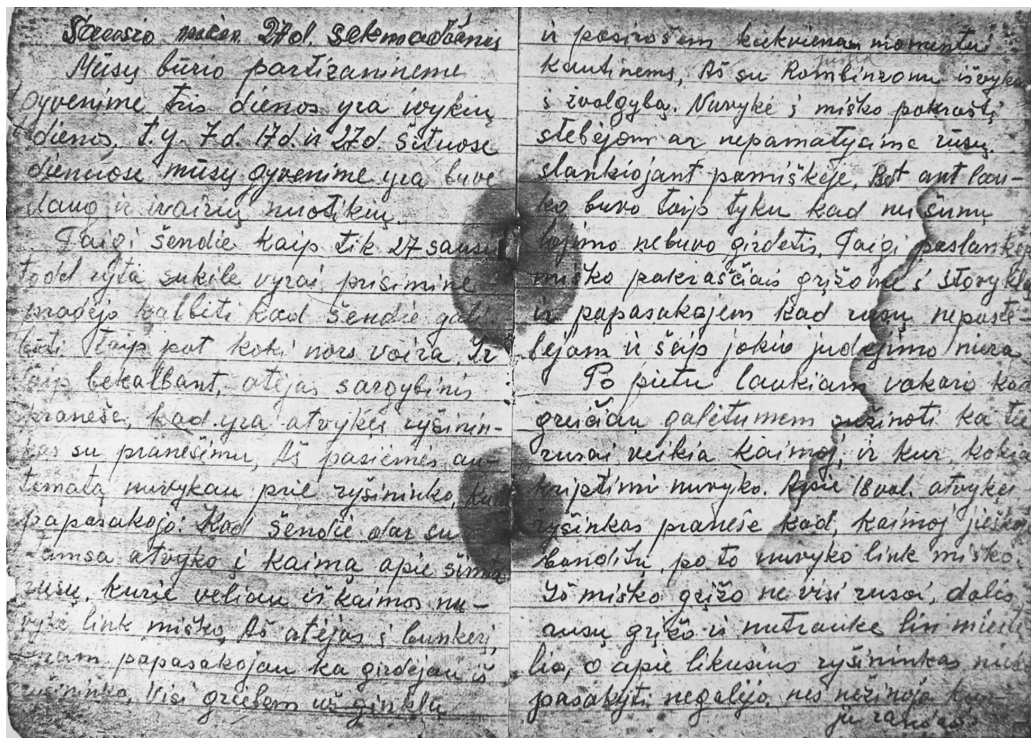 Sausio mėn 27d. sekmadienis
Mūsų būrio partizaninėme
gyvenime tris dienos yra ivykių
dienos, t.y. 7d. 17d. ir 27d. Šituose
dienuose mūsų gyvenime yra buvę
daug ir ivairių nuotikių.
Taigi šendie kaip tik 27 sausio
todėl rytą sukilę vyrai prisiminę
pradėjo kalbėti kad šendie gali
būti taip pat koki nors voira. Ir
taip bekalbant, atėjas sargybinis
pranešė, kad yra atvykęs ryšinin-
kas su pranešimu, Aš pasiemęs au-
tomatą nuvykau prie ryšininko, kur
papasakojo: Kad šendie dar su
tamsa atvyko į kaimą apie šimtą
rusų. kurie vėliau iš kaimos nu-
vykę link miško, Aš atėjas į bunkerį,
papasakojau ka girdėjau iš
ryšininko, Visi griebėm už ginklų
ir pasirošėm kiekvienam momentui
kautinėms, Aš su Rombinzonu išvyko
į žvalgybą. Nuvykę į miško pakraštį
stebėjom ar nepamatysime rusų
slankiojant pamiškėje, Bet ant lau-
ko buvo taip tyku kad nei šunų
lojimo nebuvo girdėtis, Taigi paslankę
miško pakraščiais grįžome į stovykl
ir papasakojem kad rusų nepaste-
bėjam ir šeip jokio judėjimo nėra
Po pietu laukiam vakaro kad
greičiau galėtumėm sužinoti ka tie
rusai veikia kaimoj, ir kur, kokia
kriptimi nuvyko. Apie 18 val. atvykęs
ryšinkas pranešė kad, kaimoj ješko
banditų, po to nuvyko link miško.
Iš miško grįžo ne visi rusai, dalis
rusų grįžo ir nutraukė lin mieste
lio, o apie likusius ryšininkas nieko
pasakyti negalėjo, nes nežinojo kur
ju